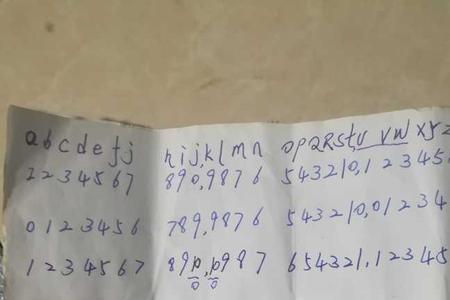 a b c d e f j h i j, k l m n o p q R s t, u v w x y z
2 2 3 4 5 6 7 8 9 0, 9 8 7 6 5 4 3 2 1 0, 1 2 3 4 5
0 1 2 3 4 5 6 7 8 9, 9 8 7 6 5 4 3 2 1 0, 0 1 2 3 4
1 2 3 4 5 6 7 8 9 p, p 9 8 7 6 5 4 3 2 1, 1 2 3 4 5
0 0